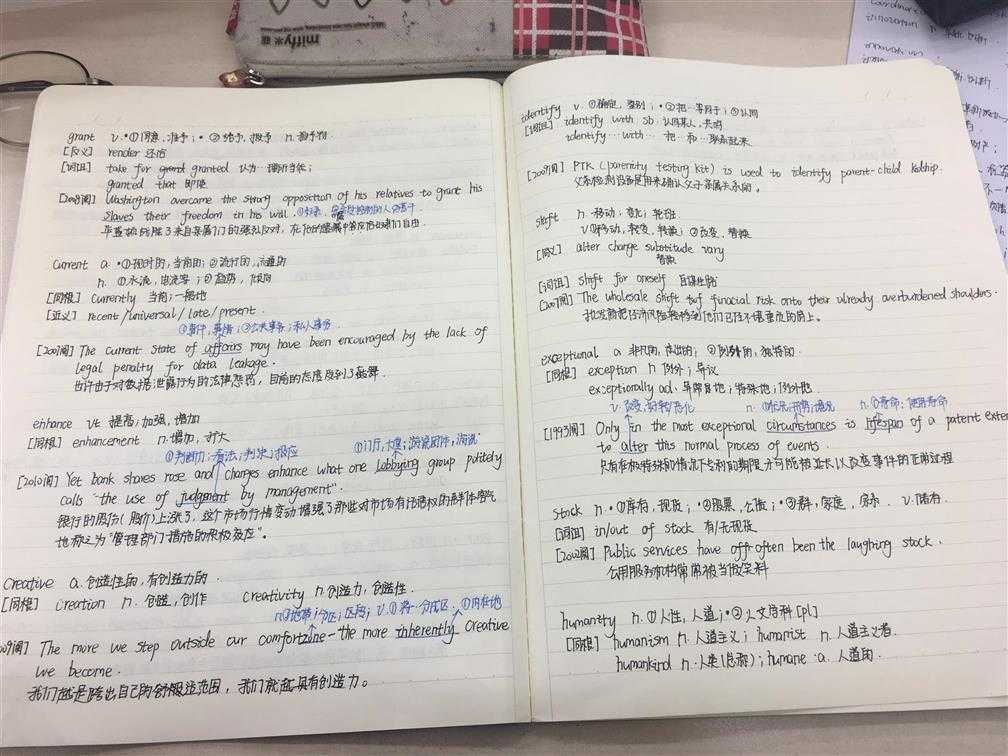 miffy
grant v. ·① 同意,准予; ·② 给予,授予 n. 拨款
[反义] render 还给
[词组] take for granted 认为…理所当然;
granted that 即使
[2008阅] Washington overcame the strong opposition of his relatives to grant his
slaves their freedom in his will.
华盛顿战胜了来自亲属们的强烈反对,在他的遗嘱中答应给奴隶们自由。
current a. ·① 现时的,当前的; ② 流行的,流通的
n. ① 水流,电流等; ② 趋势,倾向
[同根] currently 当前;一般地
[近义] recent/universal/late/present.
① 事件,事情; ② 公共事务;私人事务.
[2007阅] The current state of affairs may have been encouraged by the lack of
legal penalty for data leakage.
也许由于对数据泄漏行为的法律惩罚,目前的态度受到了鼓舞.
enhance vt 提高;加强,增加
[同根] enhancement n. 增加,扩大
① 判断力;看法;判决;报应 ① 门厅,大堂;游说团体,游说
[2010阅] Yet bank shares rose and changes enhance what one lobbying group politely
calls "the use of judgment by management".
银行的股份(股价)上涨了,这个市场行情变动增强了那些对市场有话语权的群体客气
地称之为"管理部门措施的积极反应"。
creative a. 创造性的,有创造力的.
[同根] creation n. 创造,创作 creativity n 创造力,创造性.
n① 地带;分区;区段; v. ① 将…分成区. ① 内在地
09阅] The more we step outside our comfortzone-the more inherently creative
we become.
我们越是跨出自己的舒服适范围,我们就越具有创造力。
identify v. ① 确定,鉴别; ·② 把…等同于; ③ 认同
[词组] identify with sb. 认同某人,共鸣
identify…with… 把…和…联系起来
[2009阅] PTK (parenity testing kit) is used to identify parent-child kidship.
父亲检测设备是用来确认父子亲属关系的。
shift n. 移动;变化;轮班
v. ① 移动,转变,转换; ② 改变,替换
[同义] alter change substitude vary
替换
[词组] shift for oneself 自谋生路
[2007阅] The wholesale shift of finacial risk onto their already overburdened shoulders.
批发商把经济风险转移到他们已经不堪重负的肩上。
exceptional a 非凡的,杰出的; ② 例外的,独特的.
[同根] exception n 例外;异议
exceptionally ad. 异常地;特殊地;例外地.
v. 改变, n. ① 状况,情况 n. ① 寿命;使用寿命
[1993阅] Only in the most exceptional circumstances is lifespan of a patent exten
to alter this normal process of events.
只有在极特殊的情况下专利的期限才可能被延长以改变事件的正常过程
stock n. ·① 库存,现货; ·② 股票,公债; ·③ 群,家庭, v. 储存.
[词组] in/out of stock 有/无现货
[2002阅] Public services have often been the laughing stock.
公用服务机构常常被当做笑料
humanity n. ① 人性,人道; ·② 人文学科 [pl]
[同根] humanism n. 人道主义; humanist n. 人道主义者.
humankind n. 人类(总称); humane a. 人道的.